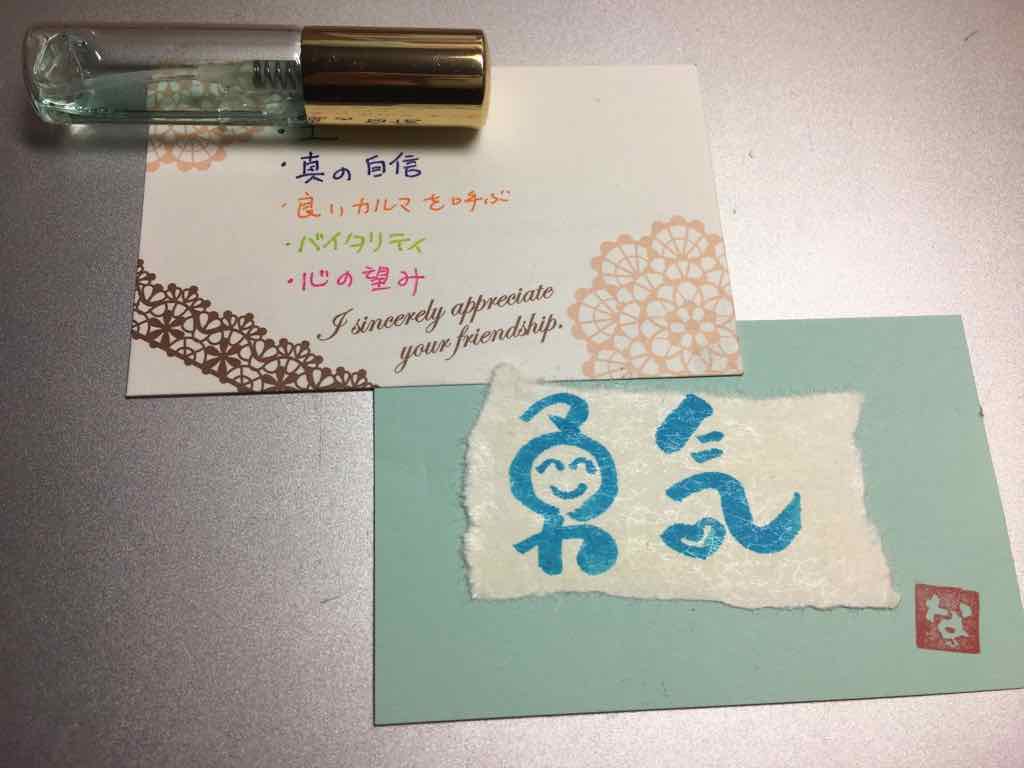 ・真の自信
・良いカルマを呼ぶ
・バイタリティ
・心の望み
I sincerely appreciate
your friendship.
勇気
な